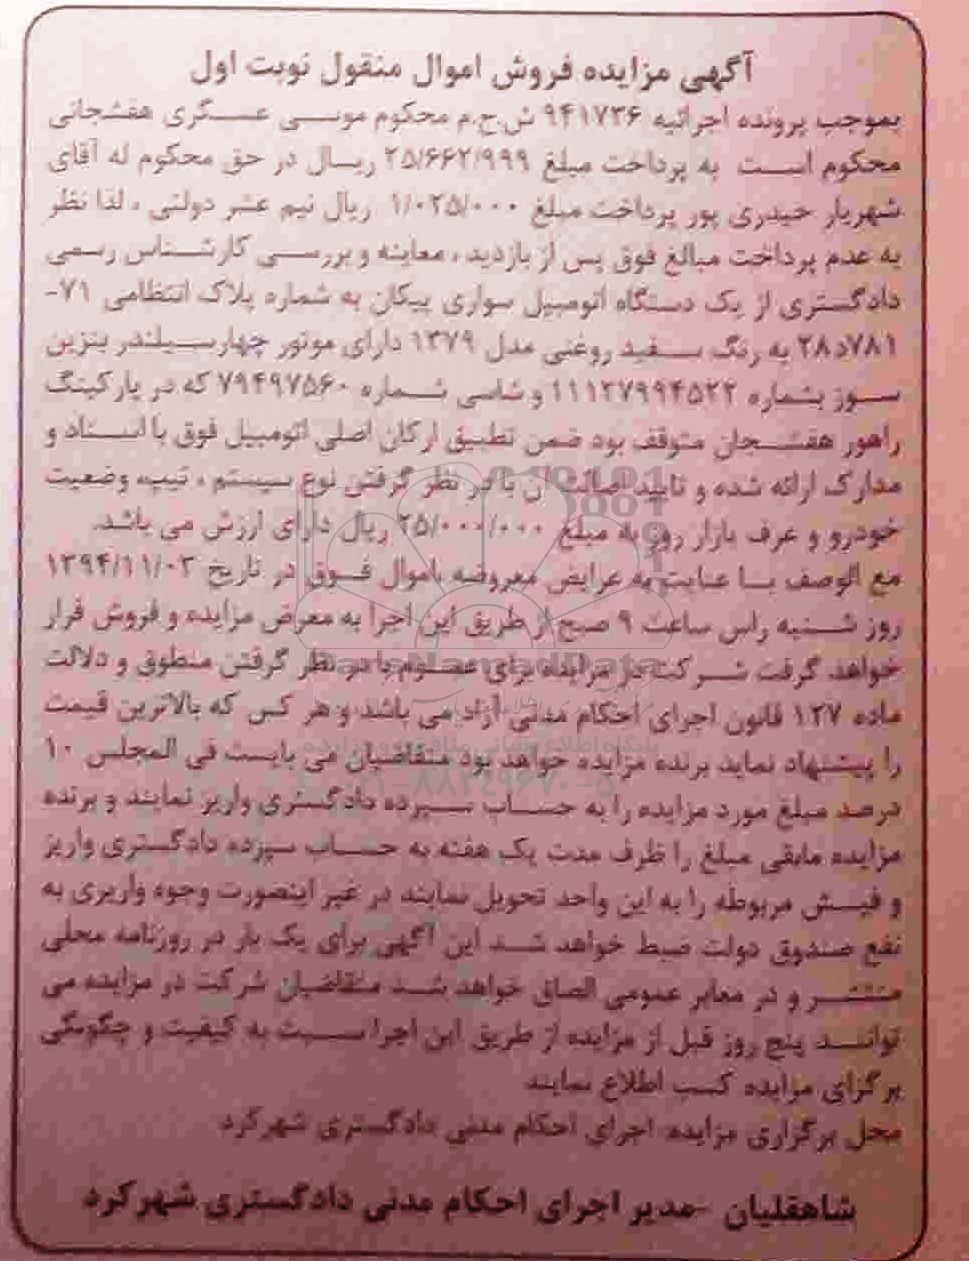 آگهی مزایده فروش اموال منقول نوبت اول
بموجب پرونده اجرائیه ۹۴۱۷۳۶ ش.ح.م محکوم موسی عسگری هفشجانی
محکوم است به پرداخت مبلغ ۲۵/۶۶۲/۹۹۹ ریسال در حق محکوم له آقای
شهریار حیدری پور پرداخت مبلغ ۱/۰۲۵/۰۰۰ ریال نیم عشر دولتی ، لذا نظر
به عدم پرداخت مبالغ فوق پس از بازدید ، معاینه و بررسی کارشناس رسمی
دادگستری از یک دستگاه اتومبیل سواری پیکان به شماره پلاک انتظامی ۷۱-
۷۸۱د۲۸ به رنگ سفید روغنی مدل ۱۳۷۹ دارای موتور چهارسیلندر بنزین
سوز بشماره ۱۱۱۲۷۹۹۴۵۲۲ و شاسی شماره ۷۹۴۹۷۵۶۰ که در پارکینگ
راهور هفشجان متوقف بود ضمن تطبیق ارکان اصلی اتومبیل فوق با اسناد و
مدارک ارائه شده و تایید اصالت آن با در نظر گرفتن نوع سیستم ، تیپ، وضعیت
خودرو و عرف بازار روز به مبلغ ۲۵/۰۰۰/۰۰۰ ریال دارای ارزش می باشد.
مع الوصف با عنایت به عرایض معروضه اموال فوق در تاریخ ۱۳۹۴/۱۱/۰۳
روز شنبه راس ساعت ۹ صبح از طریق این اجرا به معرض مزایده و فروش قرار
خواهد گرفت شرکت در مزایده برای عموم با در نظر گرفتن منطوق و دلالت
ماده ۱۲۷ قانون اجرای احکام مدنی آزاد می باشد و هر کس که بالاترین قیمت
را پیشنهاد نماید برنده مزایده خواهد بود متقاضیان می بایست فی المجلس ۱۰
درصد مبلغ مورد مزایده را به حساب سپرده دادگستری واریز نمایند و برنده
مزایده مابقی مبلغ را ظرف مدت یک هفته به حساب سپرده دادگستری واریز
و فیش مربوطه را به این واحد تحویل نمایند در غیر اینصورت وجوه واریزی به
نفع صندوق دولت ضبط خواهد شد این آگهی برای یک بار در روزنامه محلی
منتشر و در معابر عمومی الصاق خواهد شد متقاضیان شرکت در مزایده می
توانند پنج روز قبل از مزایده از طریق این اجرا نسبت به کیفیت و چگونگی
برگزای مزایده کسب اطلاع نمایند
محل برگزاری مزایده: اجرای احکام مدنی دادگستری شهرکرد
شاهقلیان -مدیر اجرای احکام مدنی دادگستری شهرکرد